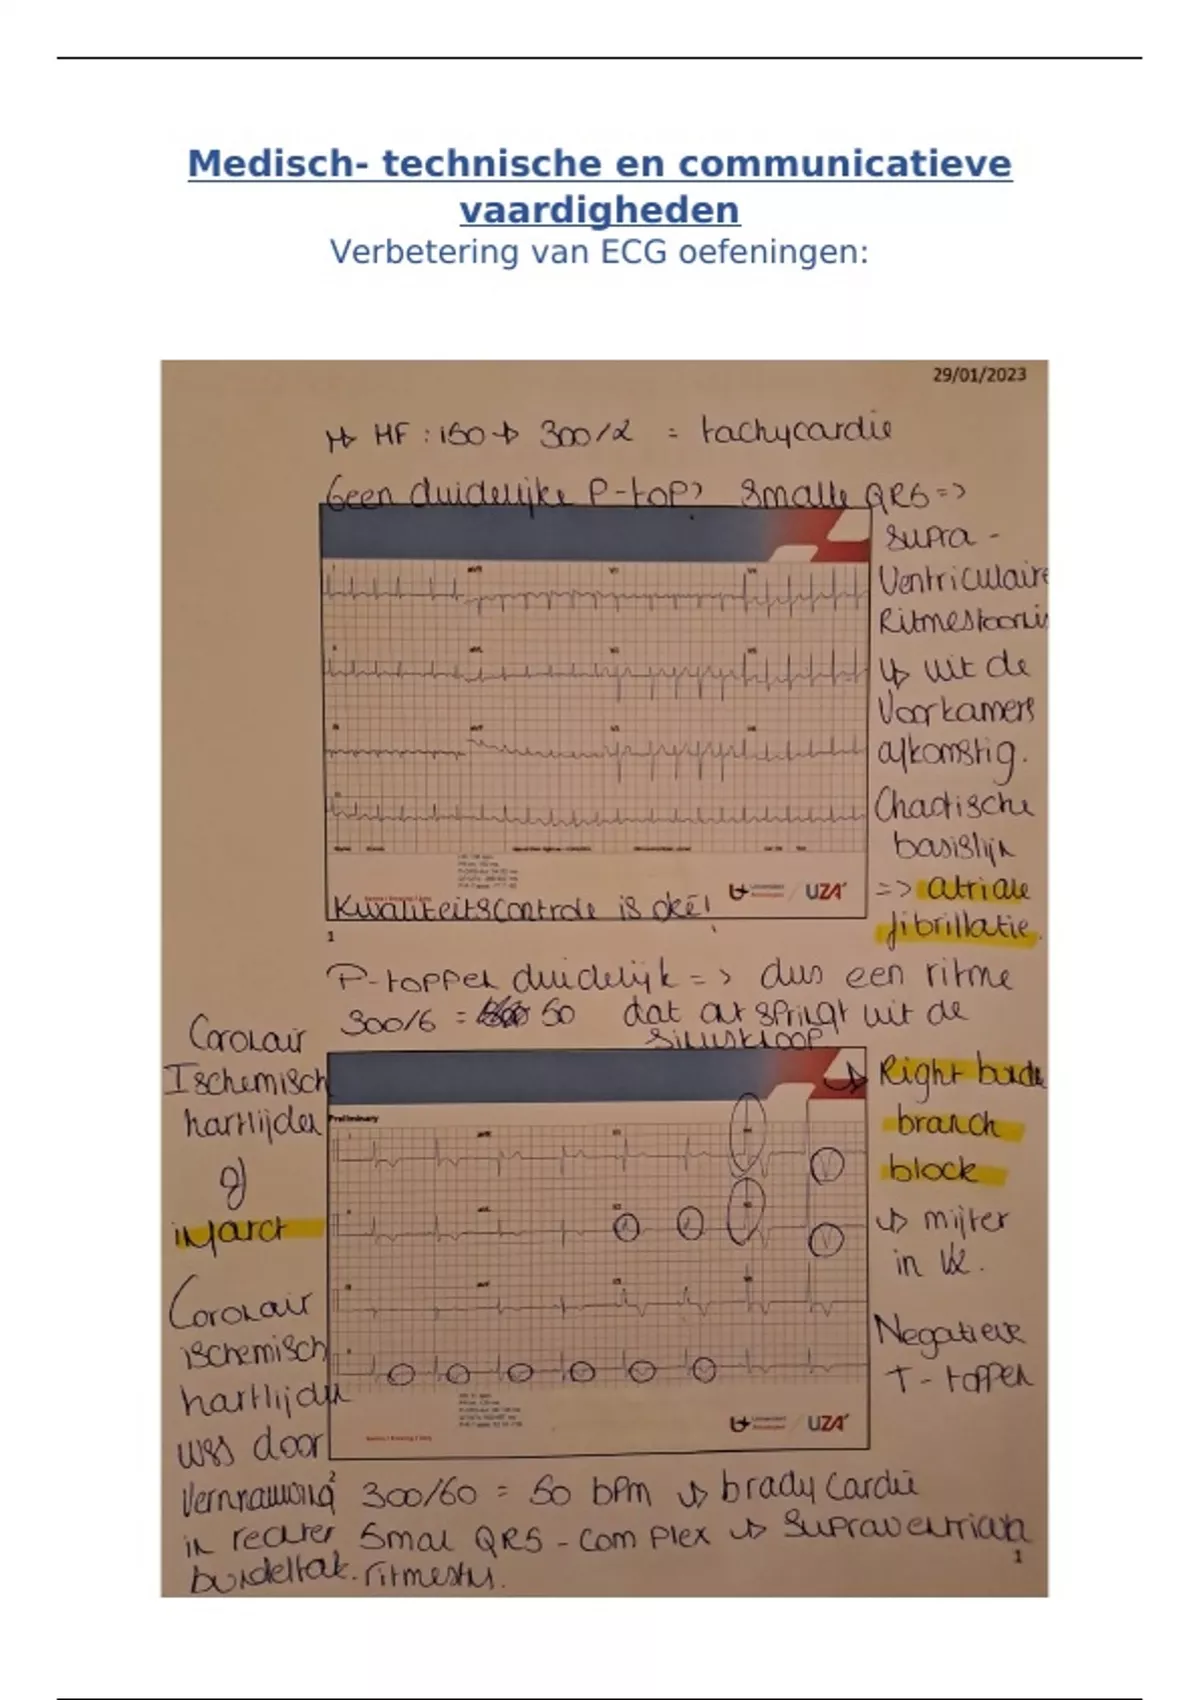 Medisch- technische en communicatieve
vaardigheden
Verbetering van ECG oefeningen:
29/01/2023
HF : 150 → 300/2 = tachycardie
Geen duidelijke P-top? smalle QRS =>
supra -
Ventriculaire
Ritmestoorni
↳ uit de
Voorkamers
afkomstig.
Chaotische
basislijn
=> atriale
fibrillatie.
I
aVR
V1
V4
II
aVL
V2
V5
III
aVF
V3
V6
II
UZA'
Kwaliteitscontrole is oké!
1
P-toppen duidelijk = > dus een ritme
300/6 = 50 dat ontspringt uit de
sinusknoop
Coronair
Ischemisch
hartlijden
of
infarct
Coronair
ischemisch
hartlijden
wss door
Vernauwing
in rechter
bundeltak.
Preliminary
UZA'
↳ Right bundle
branch
block
↳ mijter
in V2.
Negatieve
T - toppen
300/60 = 50 bpm ↳ bradycardie
Smal QRS - complex ↳ supraventricula
ritmestrs.
1